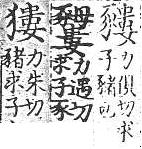 力俱切求
子豬也
力遇切
求子豕
㺏力朱切
豬求子